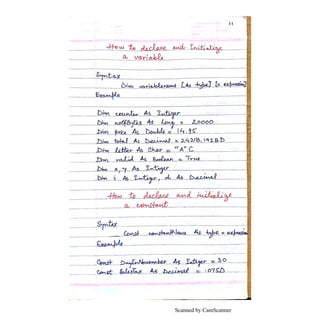 11
How to declare and Initialize
a variable
Syntax
Dim variablename [As type] [= expression]
Example
Dim counter As Integer
Dim noOfBytes As Long = 20000
Dim price As Double = 14.95
Dim total As Decimal = 24218.1928D
Dim letter As Char = "A" C
Dim valid As Boolean = True
Dim x, y As Integer
Dim i As Integer, d As Decimal
How to declare and initialize
a constant
Syntax
Const constantName As type = expression
Example
Const DaysInNovember As Integer = 30
Const SalesTax As Decimal = .075D
Scanned by CamScanner